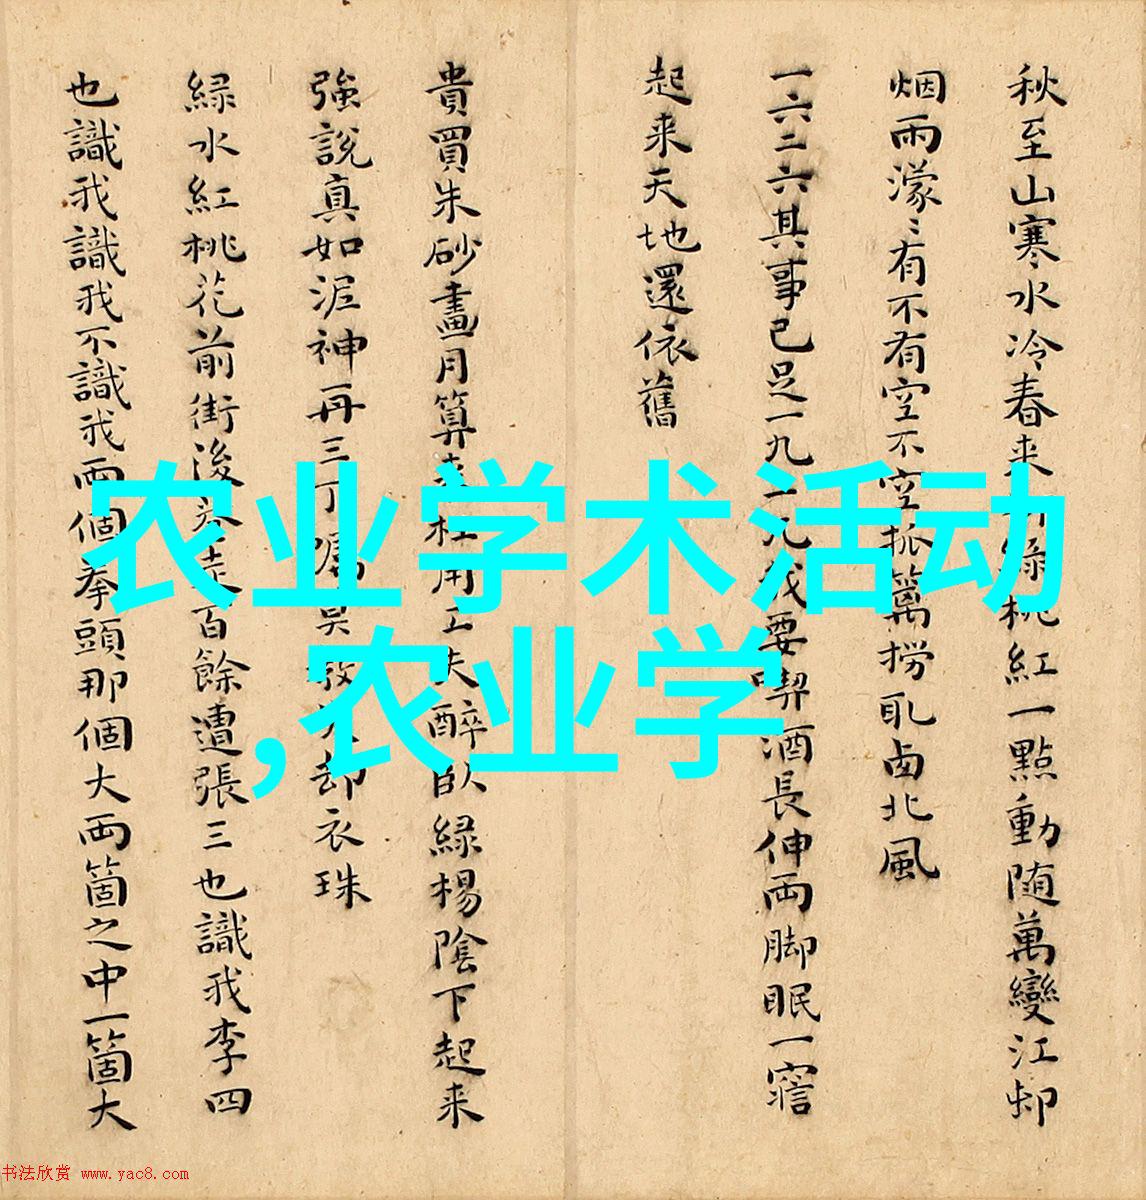 秋至山寒水冷春来
紅一點動隨萬變江邨
烟雨濛〻有不有空不空抓篱撈取西北風
一六二六其事已足一九
我要喫酒長伸両脚眠一寤
起来天地還依舊
貴買朱砂畫月算来
工夫醉臥緑楊陰下起来
強說真如泥神再三丁
却衣珠
緑水紅桃花前街後
百餘遭張三也識我李四
也識我識我不識我両個拳頭那個大両箇之中一箇大
农业学术活动
,农业学
书法欣赏 www.yac8.com